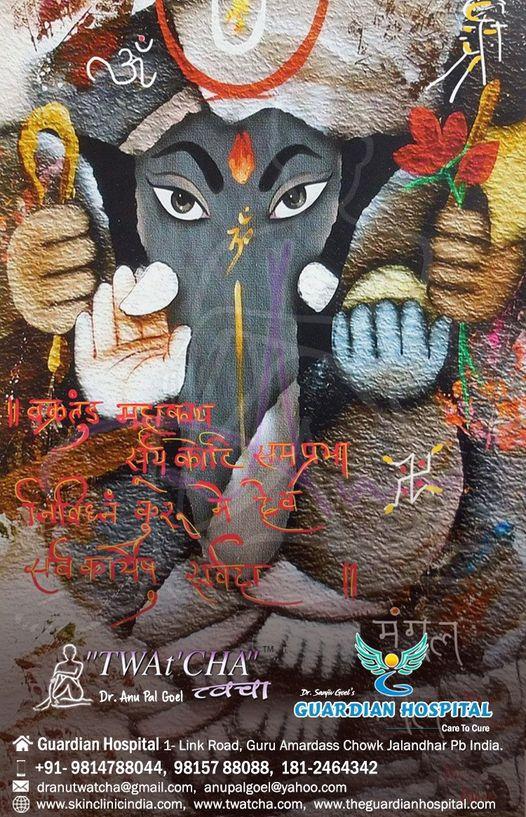 ॐ
श्री
ॐ
॥ वक्रतुंड महाकाय
सूर्य कोटि समप्रभा
निर्विघ्नं कुरू मे देव
सर्व कार्येषु सर्वदा ॥
मंगल
"TWAt'CHA"™
Dr. Anu Pal Goel त्वचा
Dr. Sanjiv Goel's
GUARDIAN HOSPITAL
Care To Cure
Guardian Hospital 1- Link Road, Guru Amardass Chowk Jalandhar Pb India.
+91- 9814788044, 98157 88088, 181-2464342
dranutwatcha@gmail.com, anupalgoel@yahoo.com
www.skinclinicindia.com, www.twatcha.com, www.theguardianhospital.com